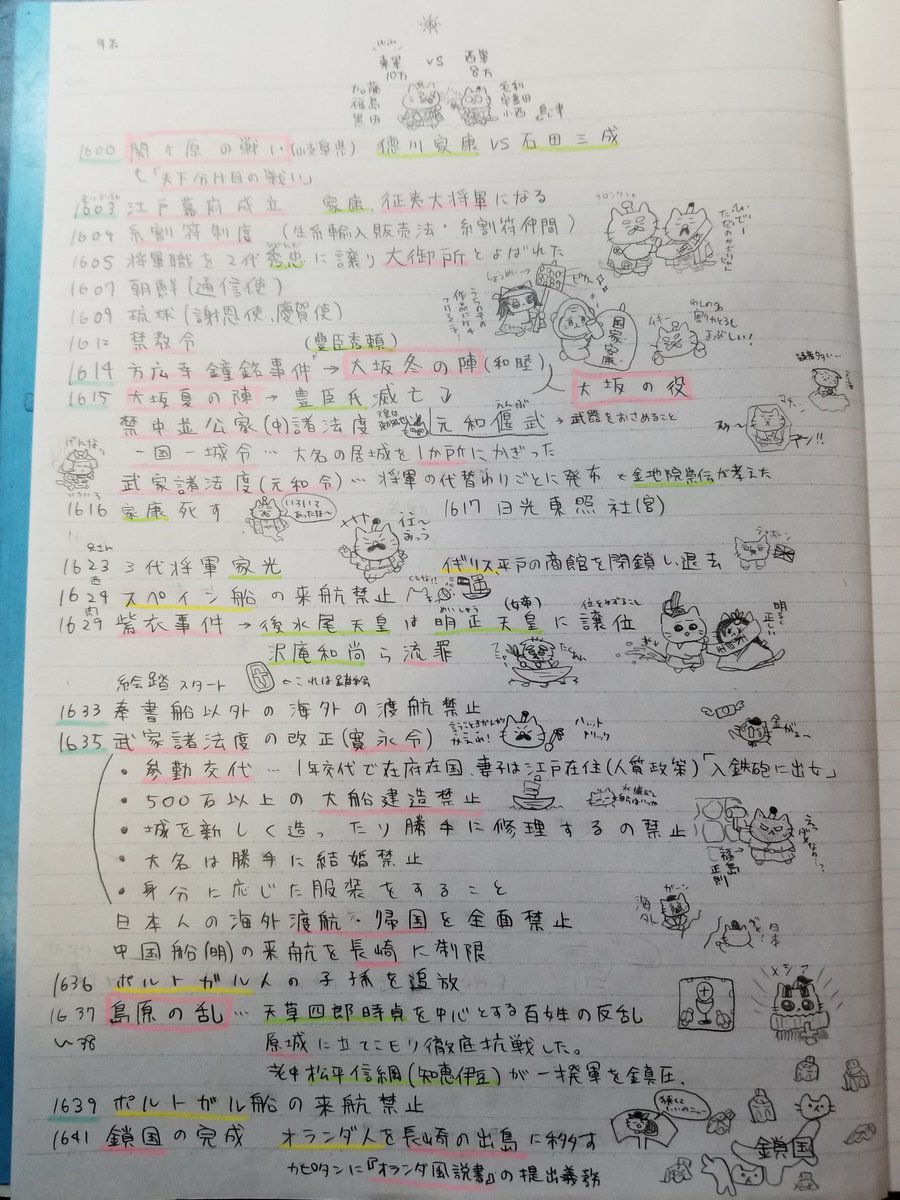 年表
東軍 VS 西軍
10万 8万
加藤 福島 黒田
毛利 宇喜田 小西 島津
1600 関ヶ原の戦い(岐阜県) 徳川家康 VS 石田三成
「天下分け目の戦い」
1603 江戸幕府成立 家康、征夷大将軍になる
1604 糸割符制度 (生糸輸入販売法・糸割符仲間)
1605 将軍職を2代秀忠に譲り大御所とよばれた
1607 朝鮮(通信使)
1609 琉球(謝恩使、慶賀使)
1612 禁教令 (豊臣秀頼)
1614 方広寺鐘銘事件→大坂冬の陣(和睦)
大坂の役
国家安康
1615 大坂夏の陣→豊臣氏滅亡
禁中並公家(中)諸法度 元和偃武 えんぶ →武器をおさめること
一国一城令…大名の居城を1か所にかぎった
武家諸法度(元和令)…将軍の代替わりごとに発布 ←金地院崇伝が考えた
1616 家康死す 1617 日光東照社(宮)
いろいろあったな〜
1623 3代将軍家光 イギリス平戸の商館を閉鎖し退去
1624 スペイン船の来航禁止
1629 紫衣事件→後水尾天皇は明正天皇に譲位
めいしょう (女帝) 位をゆずること
沢庵和尚ら流罪
絵踏スタート ←これは踏絵
1633 奉書船以外の海外の渡航禁止
1635 武家諸法度の改正(寛永令)
・参勤交代…1年交代で在府在国、妻子は江戸在住(人質政策)「入鉄砲に出女」
・500石以上の大船建造禁止
・城を新しく造ったり勝手に修理するの禁止
福島正則
・大名は勝手に結婚禁止
・身分に応じた服装をすること
日本人の海外渡航・帰国を全面禁止
海外 日本
中国船(明)の来航を長崎に制限
1636 ポルトガル人の子孫を追放
メシア
1637 島原の乱…天草四郎時貞を中心とする百姓の反乱
〜38 原城に立てこモリ徹底抗戦した。
老中松平信綱(知恵伊豆)が一揆軍を鎮圧.
1639 ポルトガル船の来航禁止
1641 鎖国の完成 オランダ人を長崎の出島に移す
鎖国
カピタンに『オランダ風説書』の提出義務